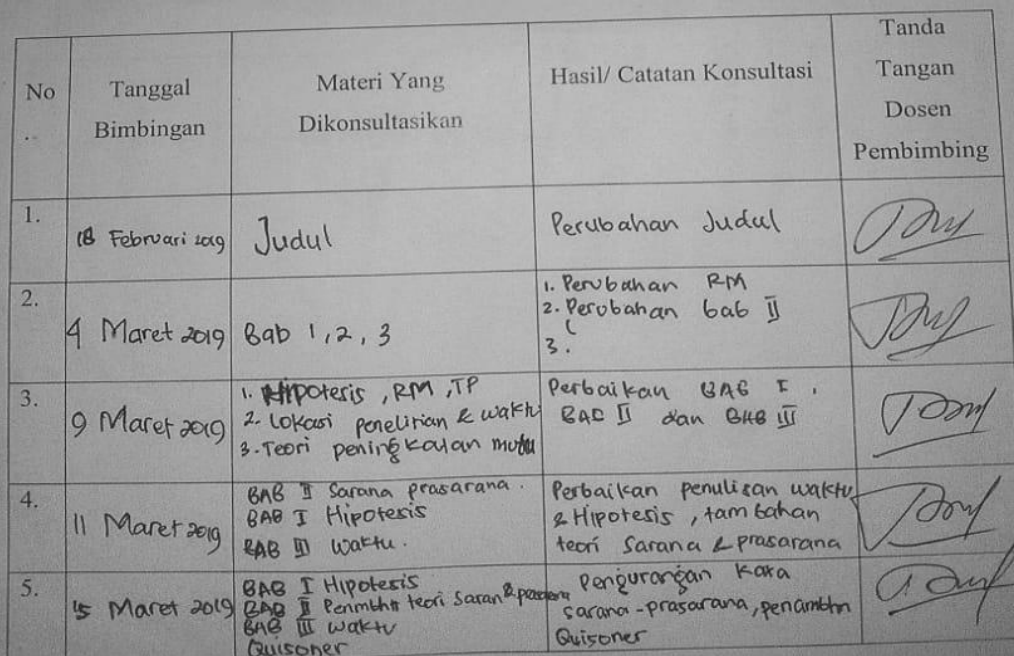 No
Tanggal
Bimbingan
Materi Yang
Dikonsultasikan
Hasil/ Catatan Konsultasi
Tanda
Tangan
Dosen
Pembimbing
1.
18 Februari 2019
Judul
Perubahan Judul
2.
4 Maret 2019
Bab 1, 2, 3
1. Perubahan RM
2. Perobahan bab II
3.
3.
9 Maret 2019
1. Hipotesis, RM, TP
2. Lokasi penelitian & waktu
3. Teori peningkatan mutu
Perbaikan BAB I,
BAB II dan BAB III
4.
11 Maret 2019
BAB II Sarana prasarana.
BAB I Hipotesis
BAB III Waktu.
Perbaikan penulisan waktu
& Hipotesis, tambahan
teori Sarana & prasarana
5.
15 Maret 2019
BAB I Hipotesis
BAB II teori
BAB III Waktu
Quisoner
Pengurangan Kata
sarana-prasarana, penambhn
Quisoner